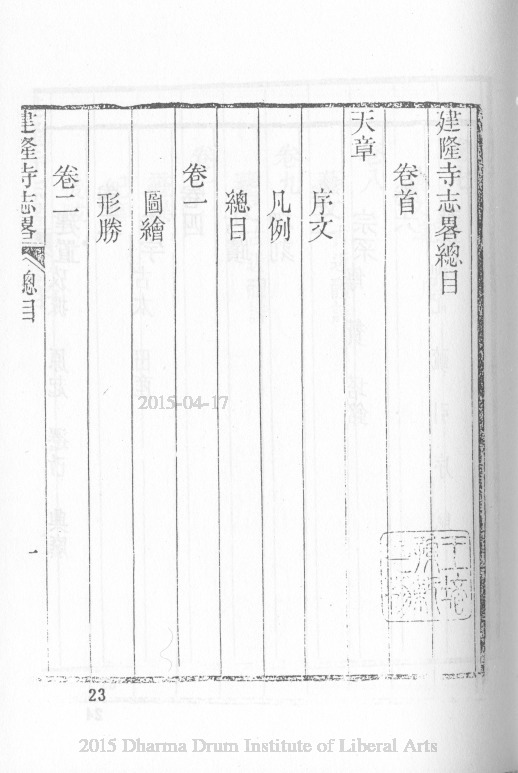 建隆寺志畧總目
卷首
天章
序文
凡例
總目
卷一
圖繪
形勝
卷二
建隆寺志畧 總目
一
2015-04-17
23
2015 Dharma Drum Institute of Liberal Arts